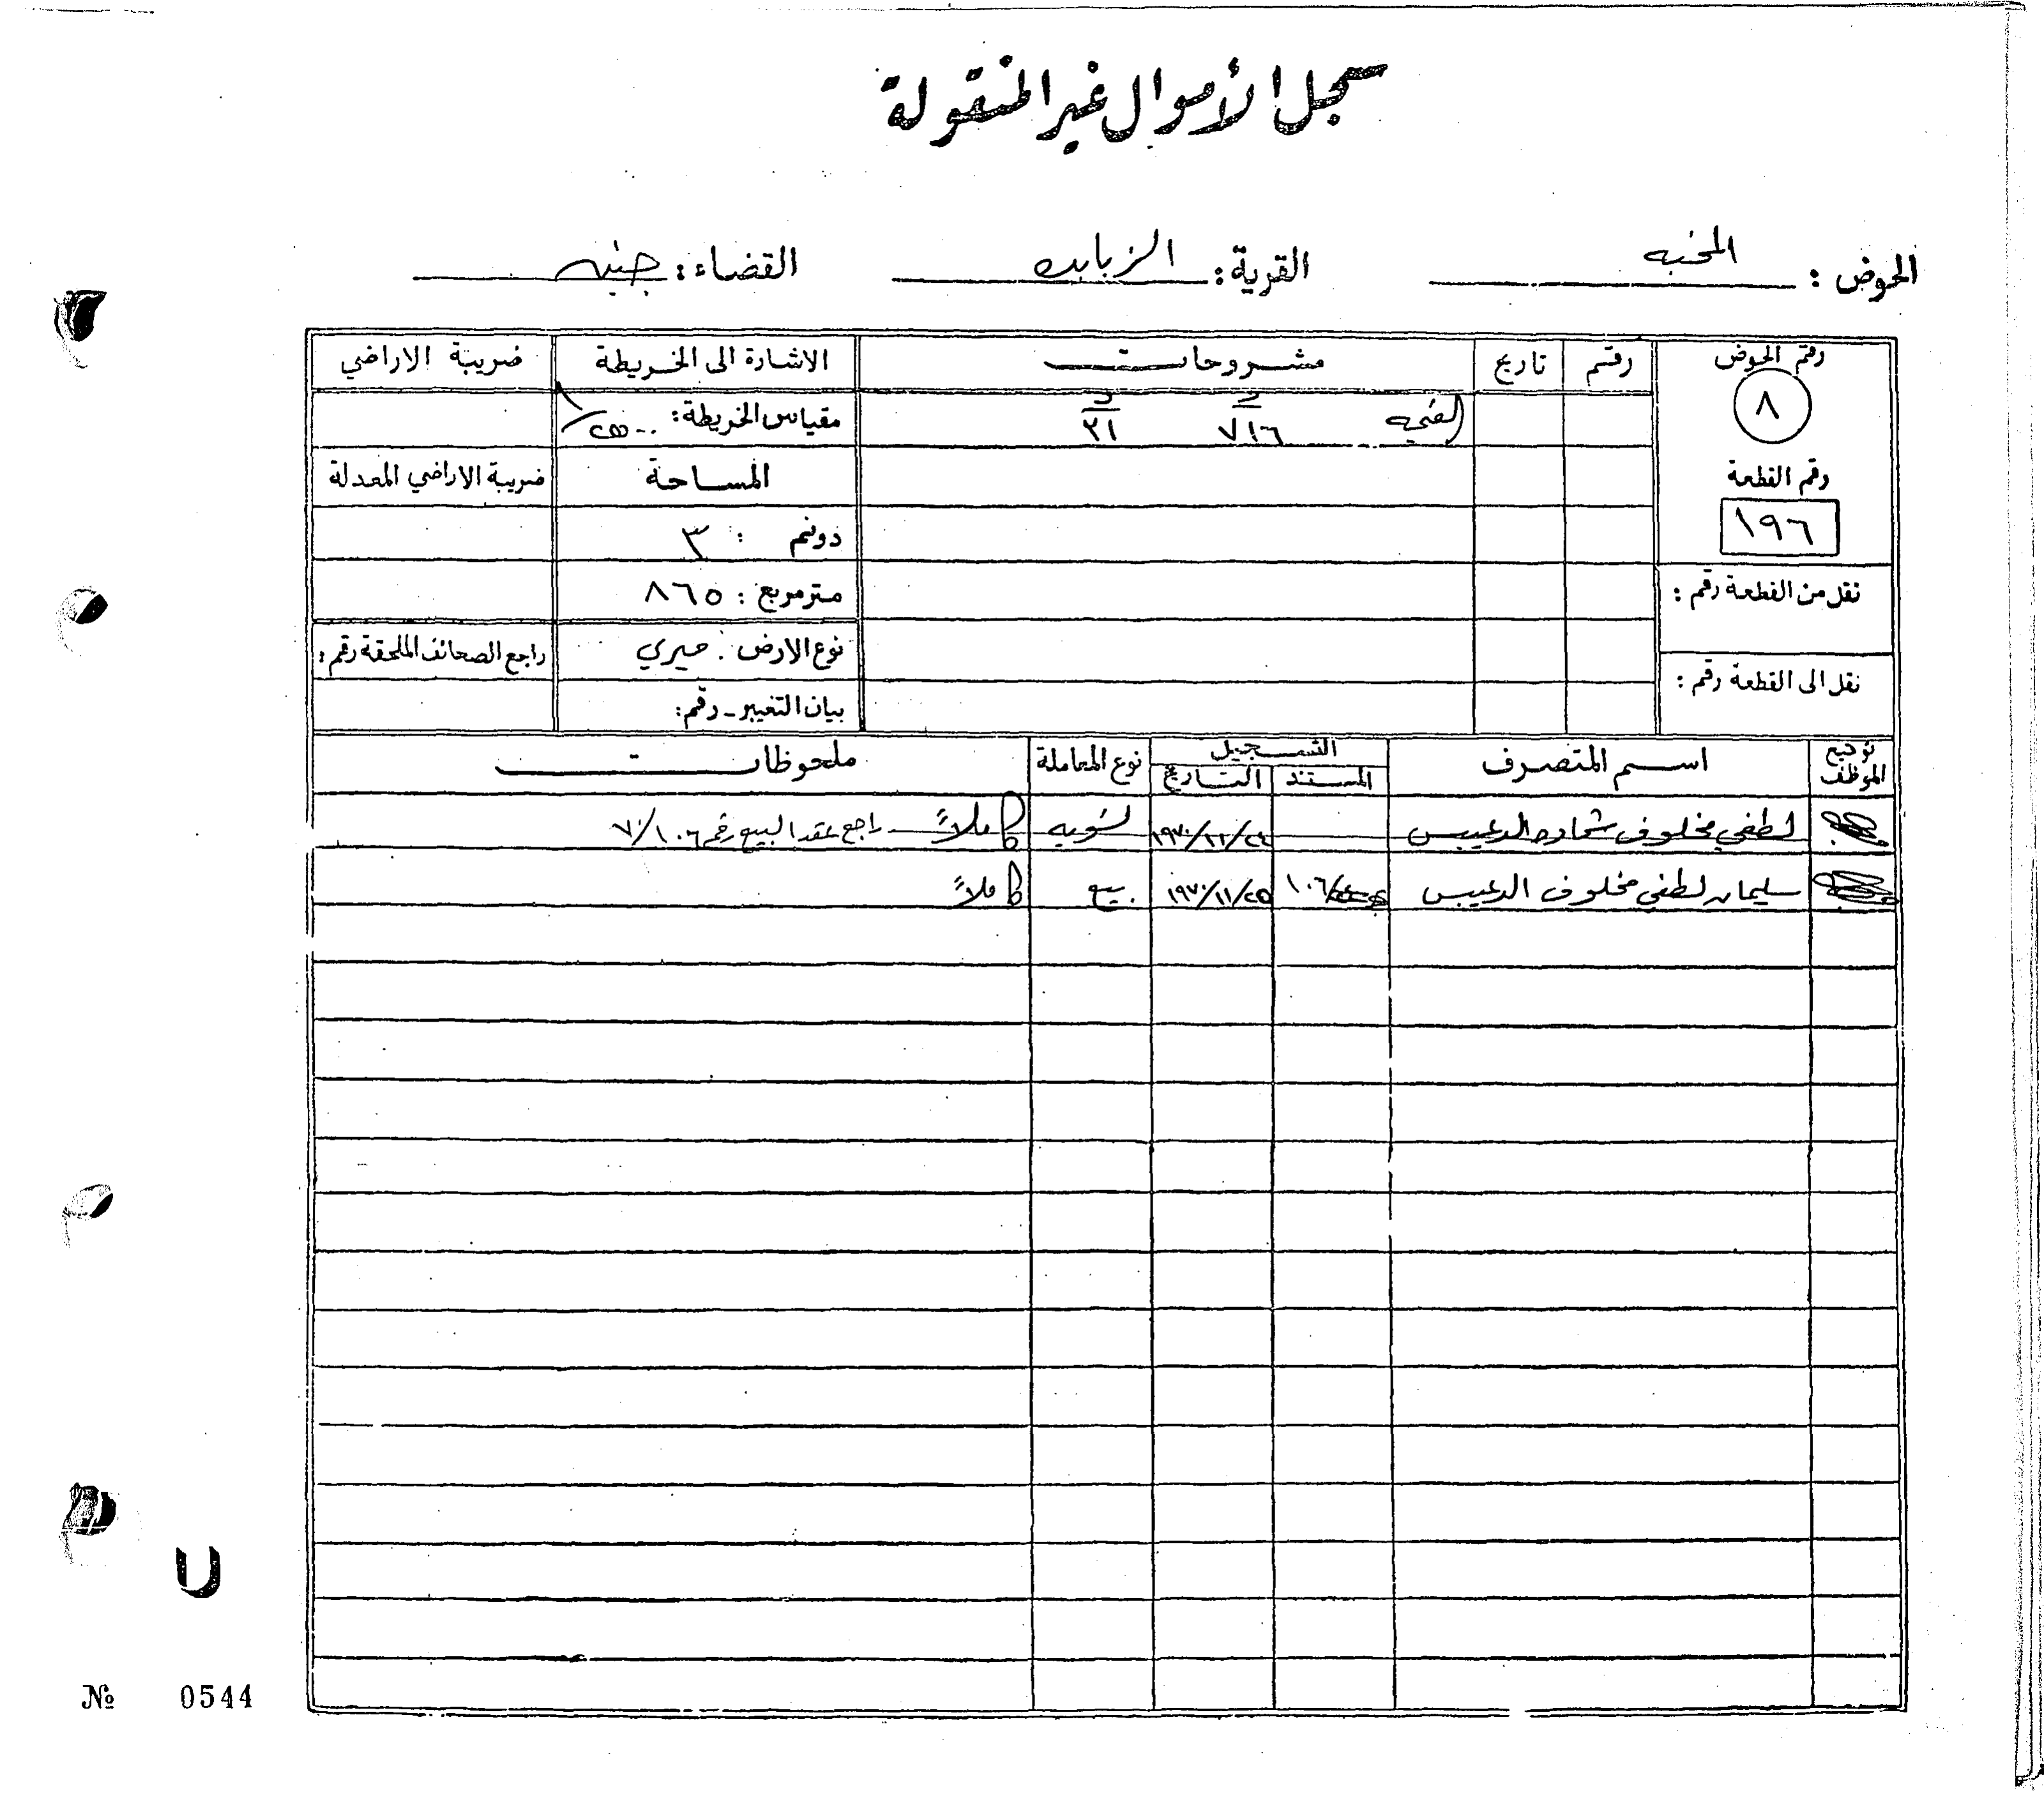 سجل الأموال غير المنقولة
الحوض : المخبه القرية : الزبابده القضاء : جنين
رقم الحوض رقم تاريخ مشروحات الاشارة الى الخريطة ضريبة الاراضي
٨ القيمه د ٧١٦ د ٣١ مقياس الخريطة : ١/٢٥٠٠
رقم القطعة المساحة ضريبة الاراضي المعدلة
١٩٦ دونم : ٣
نقل من القطعة رقم : متر مربع : ٨٦٥
نوع الارض : ميري راجع الصحائف الملحقة رقم :
نقل الى القطعة رقم : بيان التغيير - رقم :
توقيع الموظف اسم المتصرف التسجيل نوع المعاملة ملحوظات
المستند التاريخ
لطفي مخلوف شحاده الدعيبس ١٩٧٠/١١/٢٤ تسويه كاملاً راجع عقد البيع رقم ٧٠/١٠٦
سليمان لطفي مخلوف الدعيبس ١٠٦/ ١٩٧٠/١١/٢٥ بيع كاملاً
№ 0544